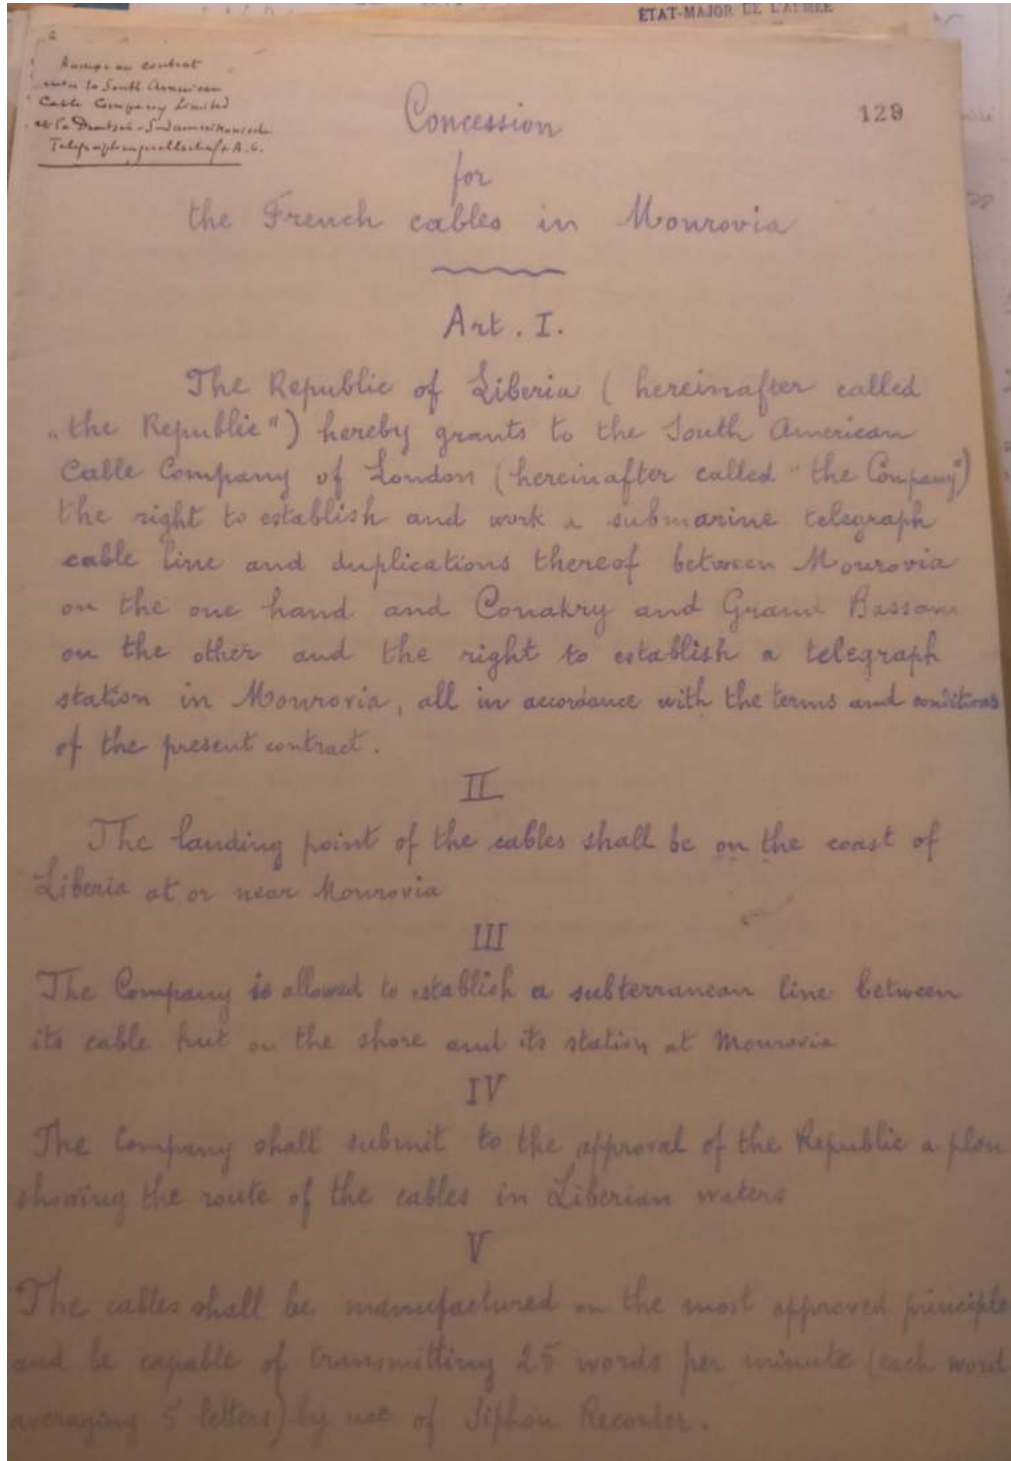 ÉTAT-MAJOR DE L'ARMÉE
Annexe au contrat
entre la South American
Cable Company Limited
et la Deutsch-Südamerikanische
Telegraphengesellschaft A.G.
129
Concession
for
the French cables in Monrovia
Art. I.
The Republic of Liberia (hereinafter called
„the Republic") hereby grants to the South American
Cable Company of London (hereinafter called "the Company")
the right to establish and work a submarine telegraph
cable line and duplications thereof between Monrovia
on the one hand and Conakry and Grand Bassam
on the other and the right to establish a telegraph
station in Monrovia, all in accordance with the terms and conditions
of the present contract.
II
The landing point of the cables shall be on the coast of
Liberia at or near Monrovia
III
The Company is allowed to establish a subterranean line between
its cable hut on the shore and its station at Monrovia
IV
The Company shall submit to the approval of the Republic a plan
showing the route of the cables in Liberian waters
V
The cables shall be manufactured on the most approved principle
and be capable of transmitting 25 words per minute (each word
averaging 5 letters) by use of Siphon Recorder.